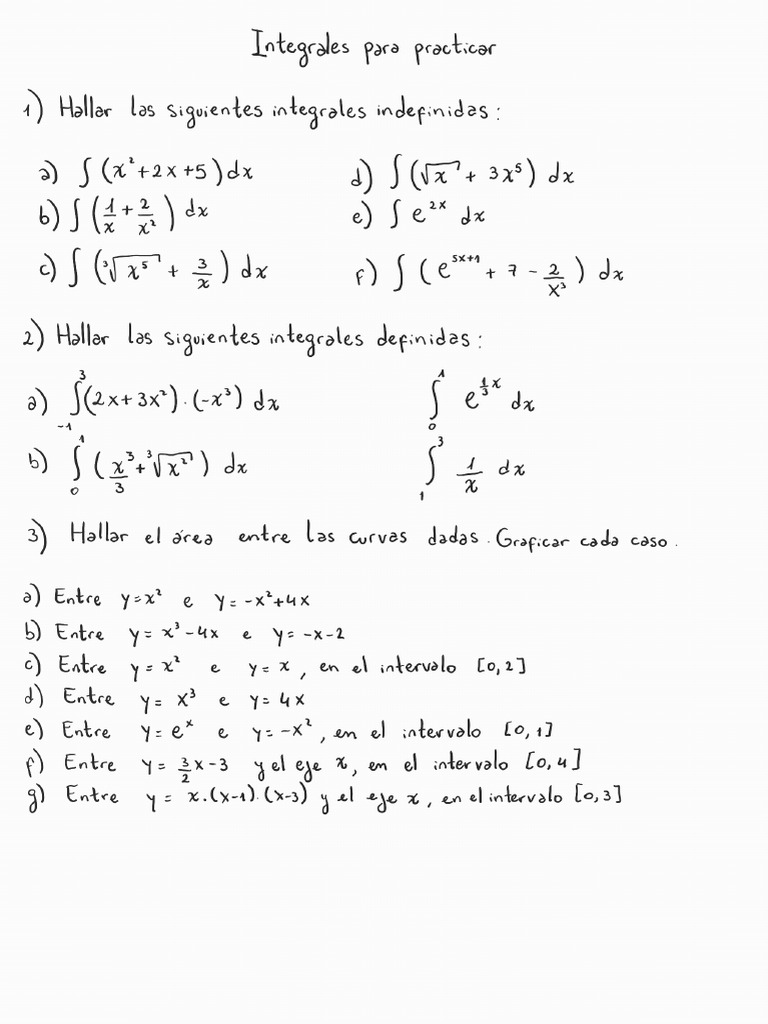 Integrales para practicar
1) Hallar las siguientes integrales indefinidas:
a) ∫(x²+2x+5)dx d) ∫(√x + 3x⁵) dx
b) ∫(1/x + 2/x²) dx e) ∫e²ˣ dx
c) ∫(∛x⁵ + 3/x) dx f) ∫(e⁵ˣ⁺¹ + 7 - 2/x³) dx
2) Hallar las siguientes integrales definidas:
a) ∫₋₁³(2x+3x²)·(-x³) dx ∫₀¹ e^(1/3 x) dx
b) ∫₀¹(x³/3+∛x²) dx ∫₁³ 1/x dx
3) Hallar el área entre las curvas dadas. Graficar cada caso.
a) Entre y=x² e y=-x²+4x
b) Entre y=x³-4x e y=-x-2
c) Entre y=x² e y=x, en el intervalo [0,2]
d) Entre y=x³ e y=4x
e) Entre y=eˣ e y=-x², en el intervalo [0,1]
f) Entre y=3/2x-3 y el eje x, en el intervalo [0,4]
g) Entre y=x.(x-1).(x-3) y el eje x, en el intervalo [0,3]